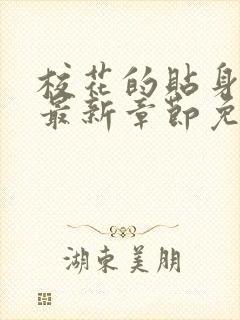 校花的贴身
最新章节免
湖东美朋